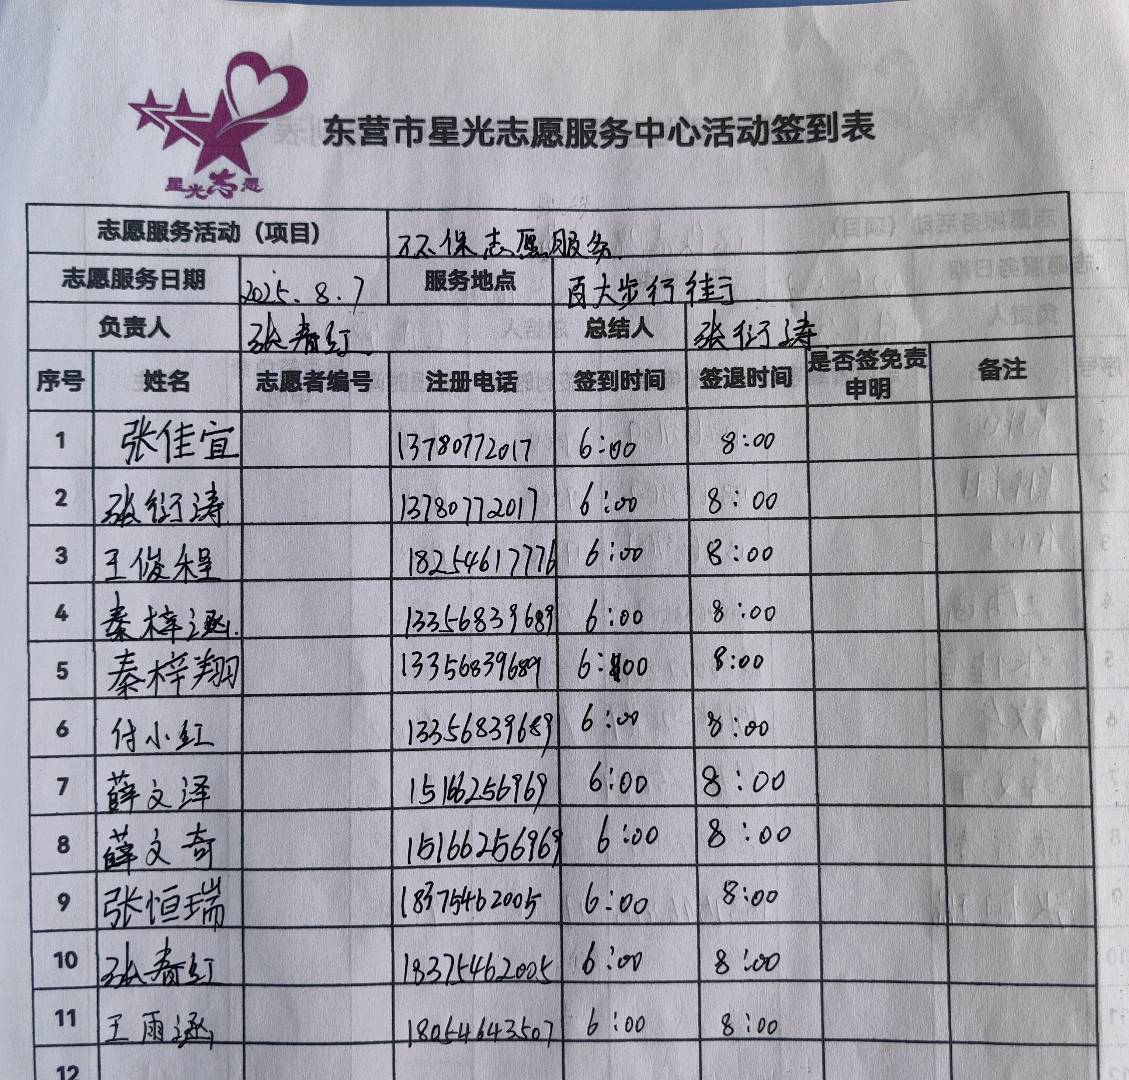 星光志愿
东营市星光志愿服务中心活动签到表
志愿服务活动（项目） 环保志愿服务
志愿服务日期 2025.8.7 服务地点 百大步行街
负责人 张春红 总结人 张衍涛
序号 姓名 志愿者编号 注册电话 签到时间 签退时间 是否签免责申明 备注
1 张佳宜 13780772017 6:00 8:00
2 张衍涛 13780772017 6:00 8:00
3 王俊程 18254617776 6:00 8:00
4 秦梓涵 13356839689 6:00 8:00
5 秦梓翔 13356839689 6:00 8:00
6 付小红 13356839689 6:00 8:00
7 薛文泽 15166256969 6:00 8:00
8 薛文奇 15166256969 6:00 8:00
9 张恒瑞 18375462005 6:00 8:00
10 张春红 18375462005 6:00 8:00
11 王雨涵 18054643507 6:00 8:00
12